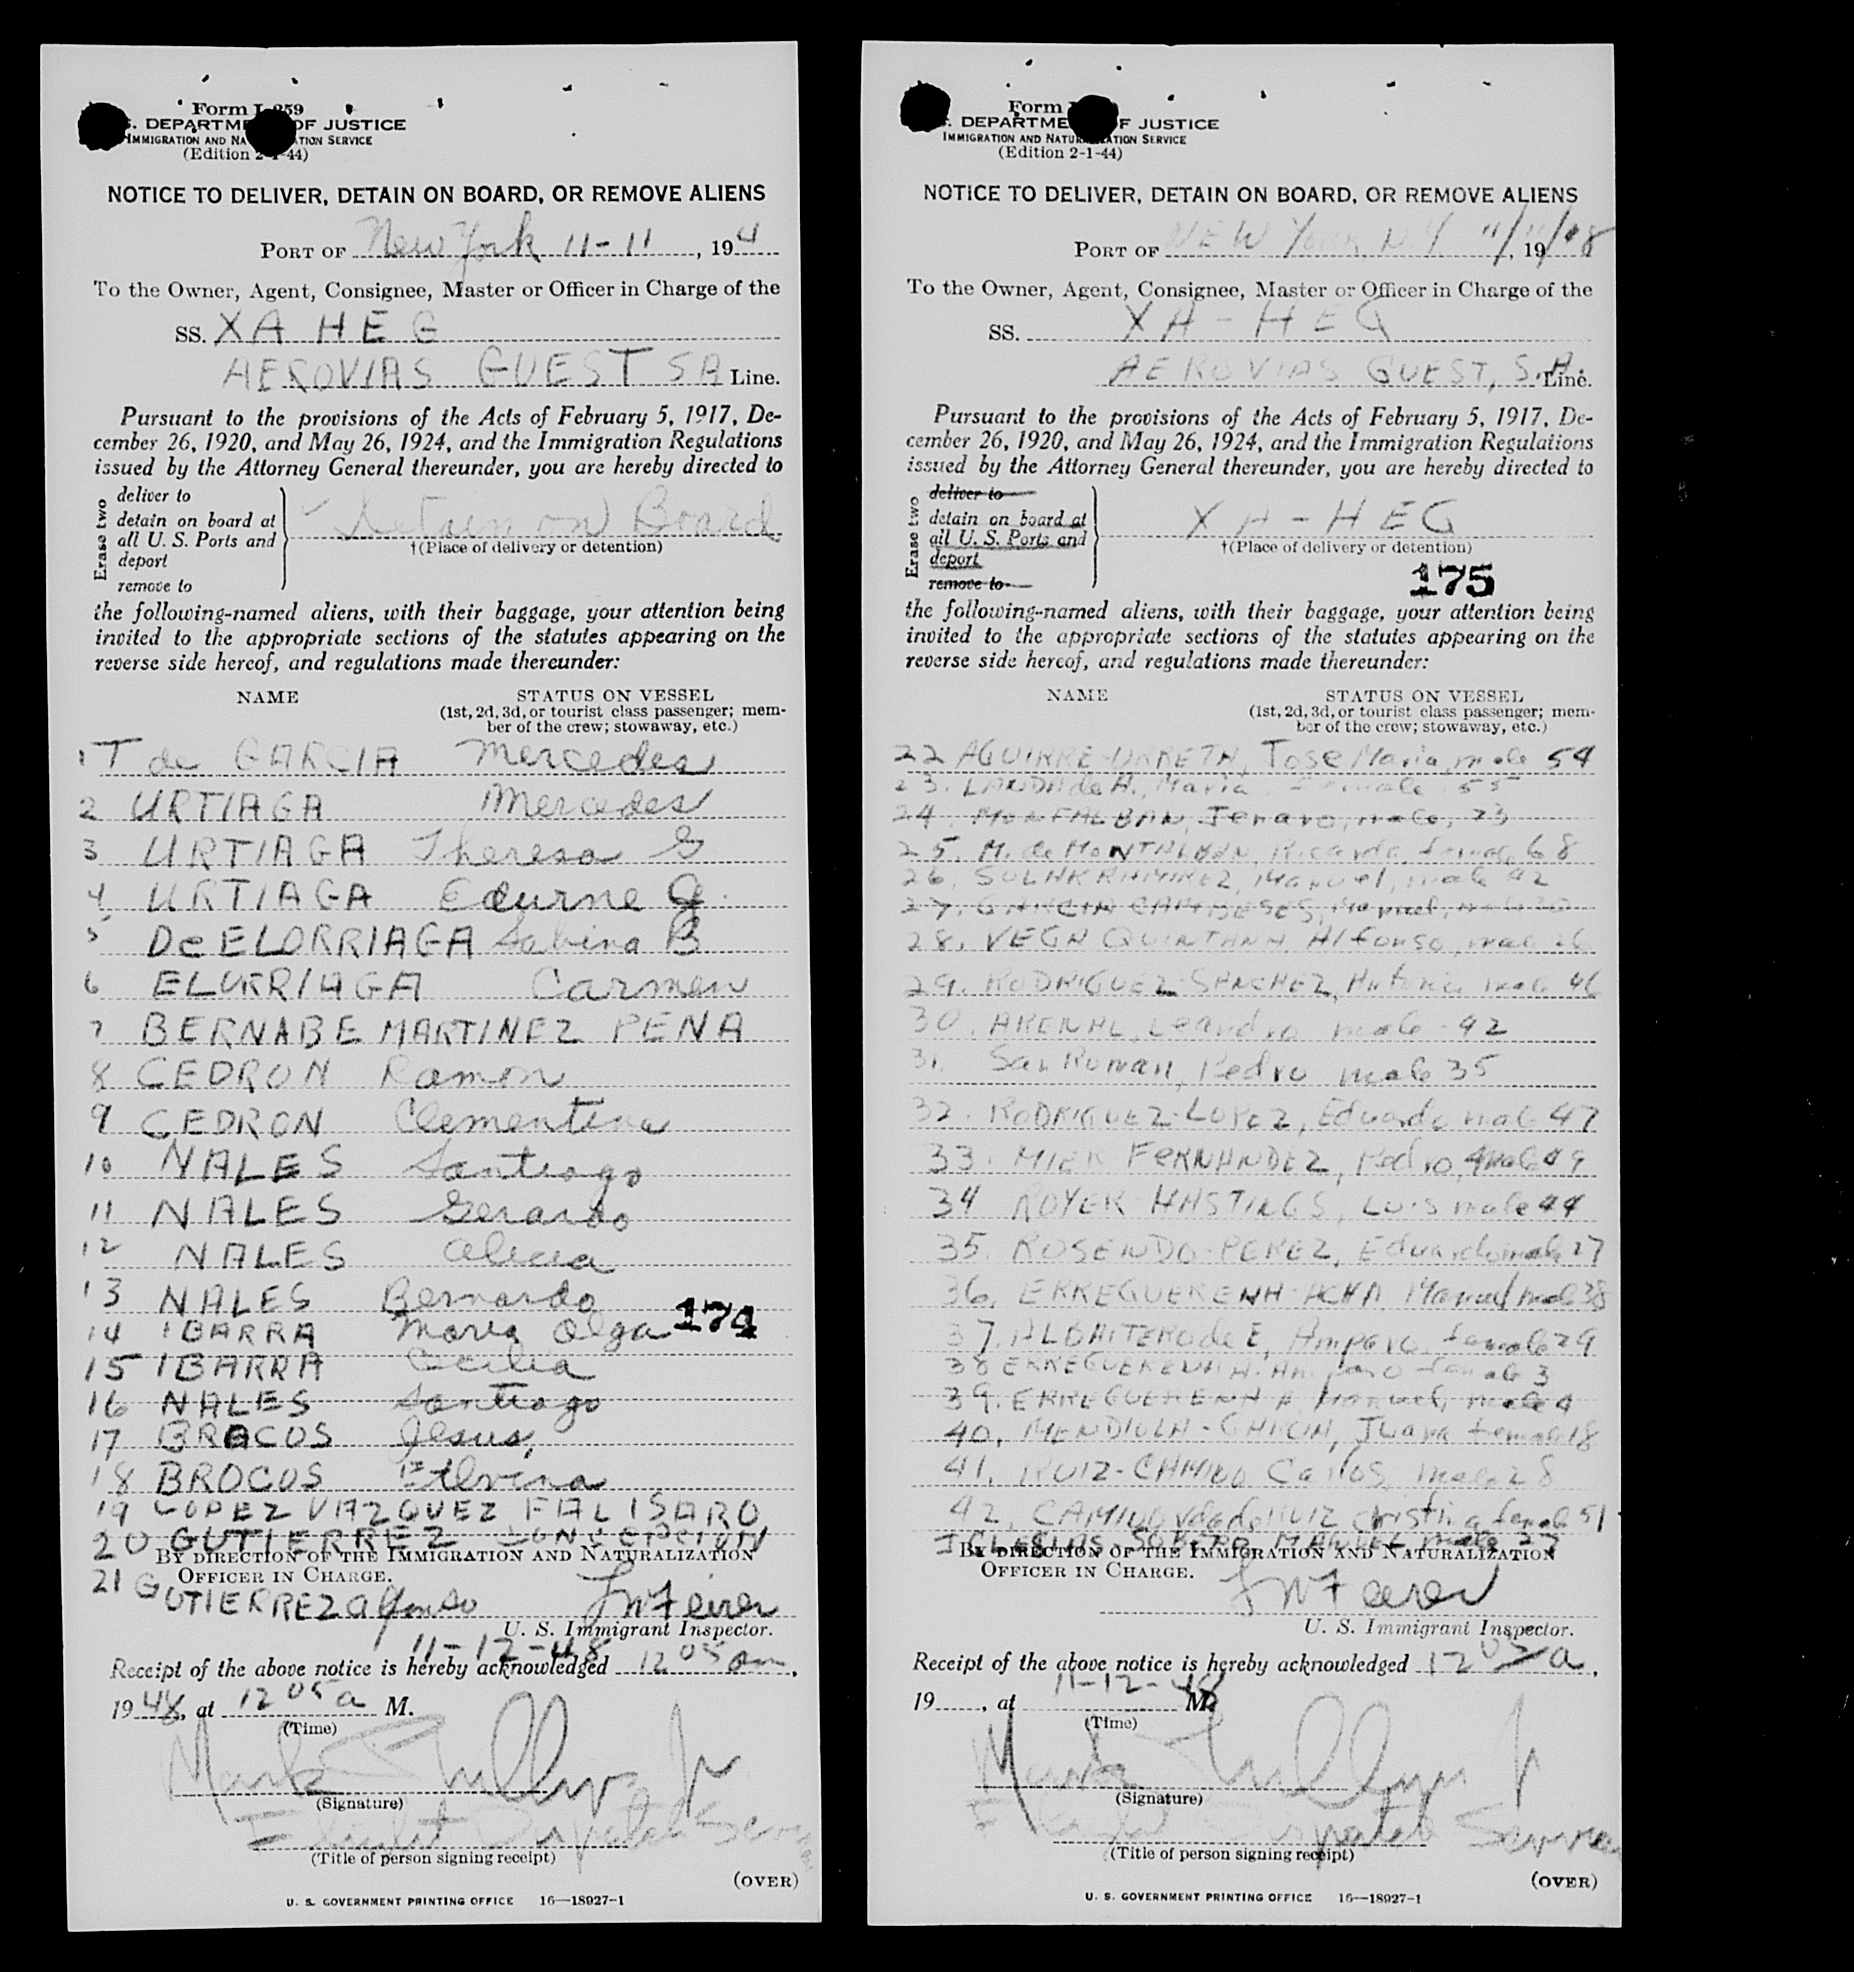 Form I-259
. DEPARTME OF JUSTICE
IMMIGRATION AND NA TION SERVICE
(Edition 2-1-44)
NOTICE TO DELIVER, DETAIN ON BOARD, OR REMOVE ALIENS
PORT OF New York 11-11, 194
To the Owner, Agent, Consignee, Master or Officer in Charge of the
SS. XA HEG
AEROVIAS GUEST SA Line.
Pursuant to the provisions of the Acts of February 5, 1917, De-
cember 26, 1920, and May 26, 1924, and the Immigration Regulations
issued by the Attorney General thereunder, you are hereby directed to
Erase two
deliver to
detain on board at
all U. S. Ports and
deport
remove to
Detain on Board
†(Place of delivery or detention)
the following-named aliens, with their baggage, your attention being
invited to the appropriate sections of the statutes appearing on the
reverse side hereof, and regulations made thereunder:
NAME STATUS ON VESSEL
(1st, 2d, 3d, or tourist class passenger; mem-
ber of the crew; stowaway, etc.)
1 T de GARCIA Mercedes
2 URTIAGA Mercedes
3 URTIAGA Theresa G
4 URTIAGA Edurne G.
5 De ELORRIAGA Sabina B
6 ELORRIAGA Carmen
7 BERNABE MARTINEZ PENA
8 CEDRON Ramon
9 CEDRON Clementina
10 NALES Santiago
11 NALES Gerardo
12 NALES Alicia
13 NALES Bernardo
174
14 IBARRA Maria Olga
15 IBARRA Cecilia
16 NALES Santiago
17 BROCOS Jesus,
18 BROCOS Etelvina
19 LOPEZ VAZQUEZ FALISARO
20 GUTIERREZ CONCEPCION
BY DIRECTION OF THE IMMIGRATION AND NATURALIZATION
OFFICER IN CHARGE.
21 GUTIERREZ Alfonso
U. S. Immigrant Inspector.
11-12-48
Receipt of the above notice is hereby acknowledged 12 05 am,
1948, at 12 05 a M.
(Time)
Mark
(Signature)
Flight Dispatch Service
(Title of person signing receipt)
(OVER)
U. S. GOVERNMENT PRINTING OFFICE 16—18927-1
Form
. DEPARTME F JUSTICE
IMMIGRATION AND NATUR ATION SERVICE
(Edition 2-1-44)
NOTICE TO DELIVER, DETAIN ON BOARD, OR REMOVE ALIENS
PORT OF NEW YORK, N Y 11/11/48, 19
To the Owner, Agent, Consignee, Master or Officer in Charge of the
SS. XA-HEG
AEROVIAS GUEST, S.A. Line.
Pursuant to the provisions of the Acts of February 5, 1917, De-
cember 26, 1920, and May 26, 1924, and the Immigration Regulations
issued by the Attorney General thereunder, you are hereby directed to
Erase two
deliver to
detain on board at
all U. S. Ports and
deport
remove to
XA-HEG
†(Place of delivery or detention)
175
the following-named aliens, with their baggage, your attention being
invited to the appropriate sections of the statutes appearing on the
reverse side hereof, and regulations made thereunder:
NAME STATUS ON VESSEL
(1st, 2d, 3d, or tourist class passenger; mem-
ber of the crew; stowaway, etc.)
22 AGUIRRE-URRETA, Jose Maria, male 54
23. LANDA de A., Maria female 55
24. MONTALBAN, Jenaro, male, 73
25. M. de MONTALBAN, Ricarda, female 68
26, SOLAR RAMIREZ, Manuel, male 42
27. GARCIA CAMBESES, Manuel, male
28. VEGA QUINTANA, Alfonso, male 26
29. RODRIGUEZ-SANCHEZ, Antonio male 46
30. ARENAL, Leandro male 42
31. San Roman, Pedro male 35
32. RODRIGUEZ-LOPEZ, Eduardo male 47
33. MIER FERNANDEZ, Pedro, male 49
34 ROYER HASTINGS, Luis male 44
35. ROSENDO-PEREZ, Eduardo male 27
36, ERREGUERENA-ACHA Manuel male 38
37. ALBAITERO de E, Amparo female 29
38 ERREGUERENA A. Amparo female 3
39. ERREGUERENA A, Manuel, male 4
40, MENDIOLA-GARCIA, Juana female 18
41. RUIZ-CAMINO Carlos, male 28
42, CAMINO vda de RUIZ Cristina female 51
IGLESIAS SOBERO MANUEL male 27
BY DIRECTION OF THE IMMIGRATION AND NATURALIZATION
OFFICER IN CHARGE.
U. S. Immigrant Inspector.
Receipt of the above notice is hereby acknowledged 12 05 a,
11-12-48
19, at M.
(Time)
Mark
(Signature)
Flight Dispatch Service
(Title of person signing receipt)
(OVER)
U. S. GOVERNMENT PRINTING OFFICE 16—18927-1